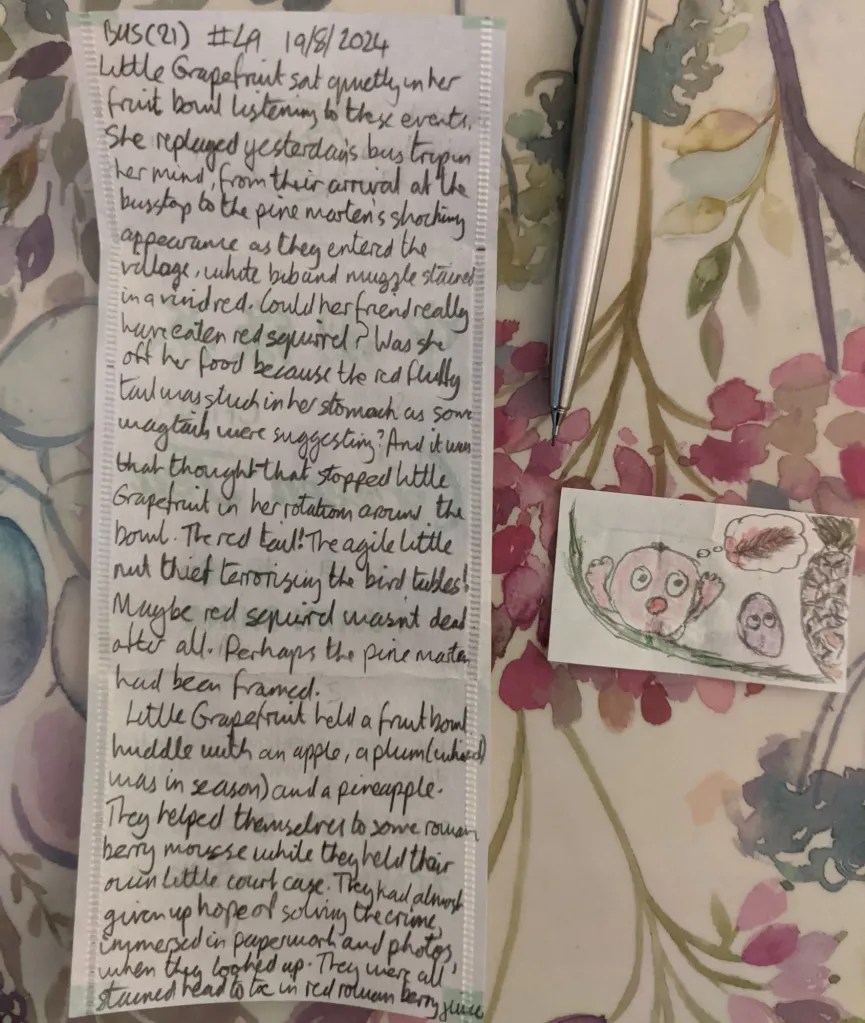 BUS(21) #LA 19/8/2024
Little Grapefruit sat quietly in her
fruit bowl listening to these events.
She replayed yesterday's bus trip in
her mind, from their arrival at the
busstop to the pine marten's shocking
appearance as they entered the
village, white bib and muzzle stained
in a vivid red. Could her friend really
have eaten red squirrel? Was she
off her food because the red fluffy
tail was stuck in her stomach as some
wagtails were suggesting? And it was
that thought that stopped Little
Grapefruit in her rotations around the
bowl. The red tail! The agile little
nut thief terrorising the bird tables!
Maybe red squirrel wasn't dead
after all. Perhaps the pine marten
had been framed.
Little Grapefruit held a fruit bowl
huddle with an apple, a plum (which
was in season) and a pineapple.
They helped themselves to some rowan
berry mousse while they held their
own little court case. They had almost
given up hope of solving the crime,
immersed in paperwork and photos,
when they looked up. They were all
stained head to toe in red rowan berry juice